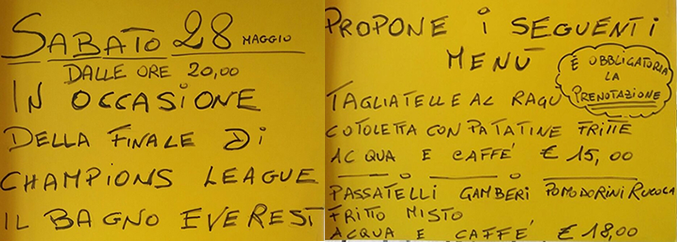 SABATO 28 MAGGIO
DALLE ORE 20,00
IN OCCASIONE
DELLA FINALE DI
CHAMPIONS LEAGUE
IL BAGNO EVEREST
PROPONE I SEGUENTI
MENÙ
È OBBLIGATORIA
LA
PRENOTAZIONE
TAGLIATELLE AL RAGU
COTOLETTA CON PATATINE FRITTE
ACQUA E CAFFE' € 15,00
PASSATELLI GAMBERI POMODORINI RUCOLA
FRITTO MISTO
ACQUA E CAFFE' € 18,00